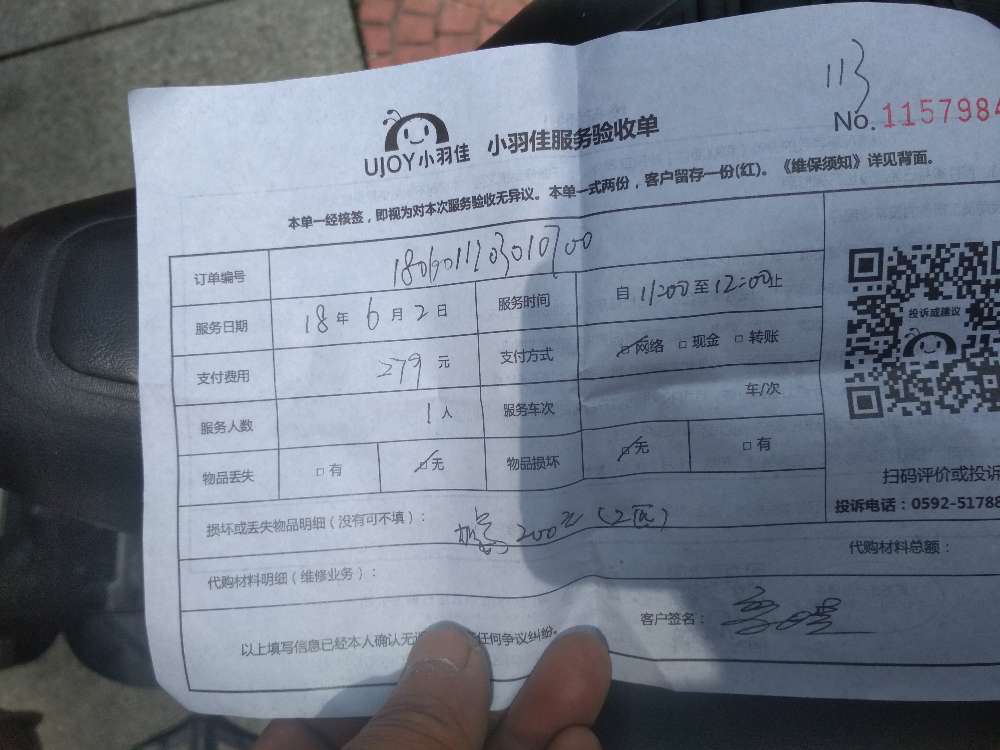 113
No. 1157984
UJOY小羽佳 小羽佳服务验收单
本单一经核签，即视为对本次服务验收无异议。本单一式两份，客户留存一份(红)。《维保须知》详见背面。
订单编号
服务日期 18 年 6 月 2 日 服务时间 自 11:00 至 12:00 止
支付费用 279 元 支付方式 ☑网络 □现金 □转账
服务人数 1 人 服务车次 车/次
物品丢失 □有 ☑无 物品损坏 ☑无 □有
投诉或建议
扫码评价或投诉
投诉电话：0592-51788
损坏或丢失物品明细（没有可不填）： 加氟 200元（2匹）
代购材料明细（维修业务）： 代购材料总额：
以上填写信息已经本人确认无 任何争议纠纷。 客户签名：